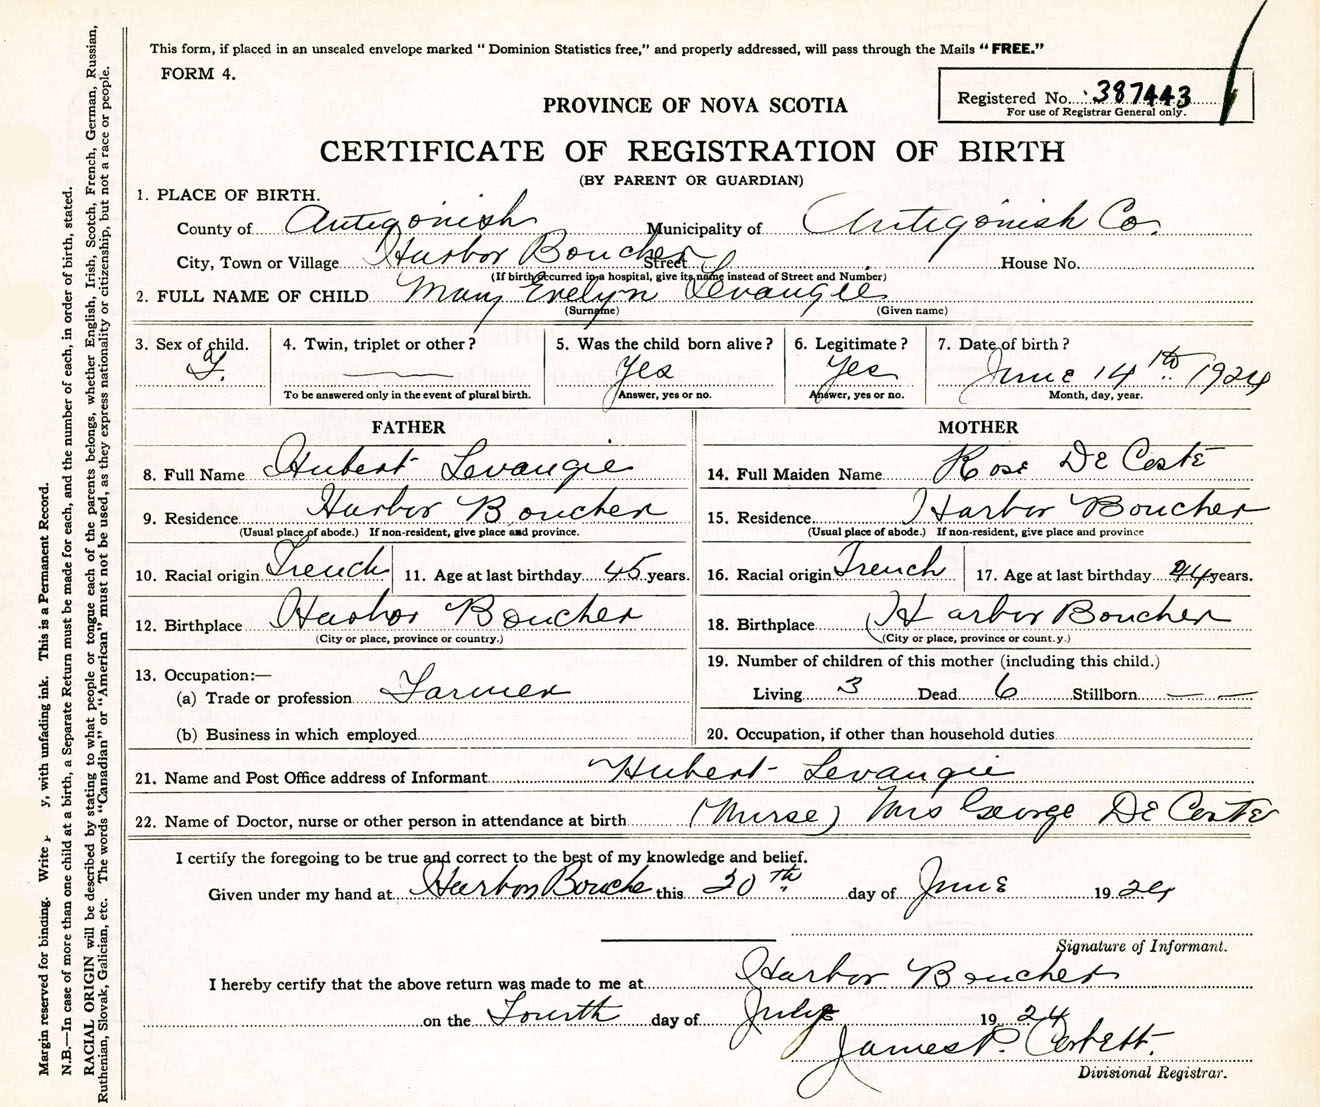 This form, if placed in an unsealed envelope marked “ Dominion Statistics free,” and properly addressed, will pass through the Mails “ FREE.”
FORM 4.
Registered No. 387443
For use of Registrar General only.
PROVINCE OF NOVA SCOTIA
CERTIFICATE OF REGISTRATION OF BIRTH
(BY PARENT OR GUARDIAN)
1. PLACE OF BIRTH.
County of Antigonish Municipality of Antigonish Co.
City, Town or Village Harbor Boucher Street House No.
(If birth occurred in a hospital, give its name instead of Street and Number)
2. FULL NAME OF CHILD Mary Evelyn Levangie
(Surname) (Given name)
3. Sex of child. 4. Twin, triplet or other? 5. Was the child born alive? 6. Legitimate? 7. Date of birth?
F. — Yes Yes June 14th 1924
To be answered only in the event of plural birth. Answer, yes or no. Answer, yes or no. Month, day, year.
FATHER
8. Full Name Hubert Levangie
9. Residence Harbor Boucher
(Usual place of abode.) If non-resident, give place and province.
10. Racial origin French 11. Age at last birthday 45 years.
12. Birthplace Harbor Boucher
(City or place, province or country.)
13. Occupation:—
(a) Trade or profession Farmer
(b) Business in which employed
MOTHER
14. Full Maiden Name Rose De Coste
15. Residence Harbor Boucher
(Usual place of abode.) If non-resident, give place and province
16. Racial origin French 17. Age at last birthday years.
18. Birthplace Harbor Boucher
(City or place, province or count.y.)
19. Number of children of this mother (including this child.)
Living 3 Dead 6 Stillborn — —
20. Occupation, if other than household duties
21. Name and Post Office address of Informant Hubert Levangie
22. Name of Doctor, nurse or other person in attendance at birth (Nurse) Mrs George De Coste
I certify the foregoing to be true and correct to the best of my knowledge and belief.
Given under my hand at Harbor Bouche this 20th day of June 1924
Signature of Informant.
I hereby certify that the above return was made to me at Harbor Boucher
on the Fourth day of July 1924
James P. Corbett.
Divisional Registrar.
Margin reserved for binding. Write y, with unfading ink. This is a Permanent Record.
N.B.—In case of more than one child at a birth, a Separate Return must be made for each, and the number of each, in order of birth, stated.
RACIAL ORIGIN will be described by stating to what people or tongue each of the parents belongs, whether English, Irish, Scotch, French, German, Russian,
Ruthenian, Slovak, Galician, etc. The words “Canadian” or “American” must not be used, as they express nationality or citizenship, but not a race or people.